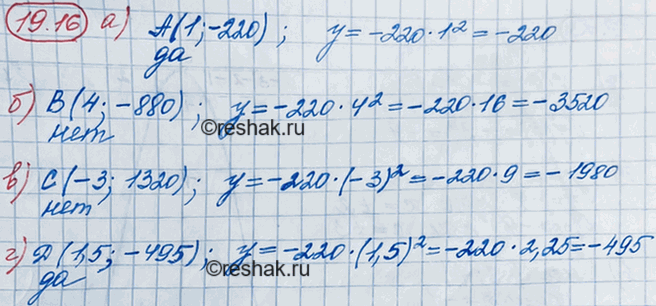 19.16 а) А(1; -220); y = -220 · 1² = -220
да
б) В(4; -880); y = -220 · 4² = -220 · 16 = -3520
нет
©reshak.ru
в) С(-3; 1320); y = -220 · (-3)² = -220 · 9 = -1980
нет
г) Д(1,5; -495); y = -220 · (1,5)² = -220 · 2,25 = -495
да
©reshak.ru